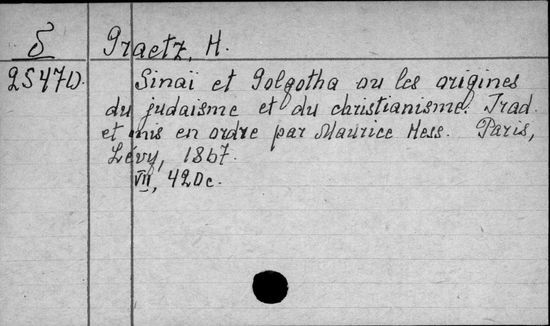 δ Graetz, H.
2547D. Sinaï et Golgotha ou les origines
du judaisme et du christianisme. Trad.
et mis en ordre par Maurice Hess. Paris,
Lévy, 1867.
VII, 420c.